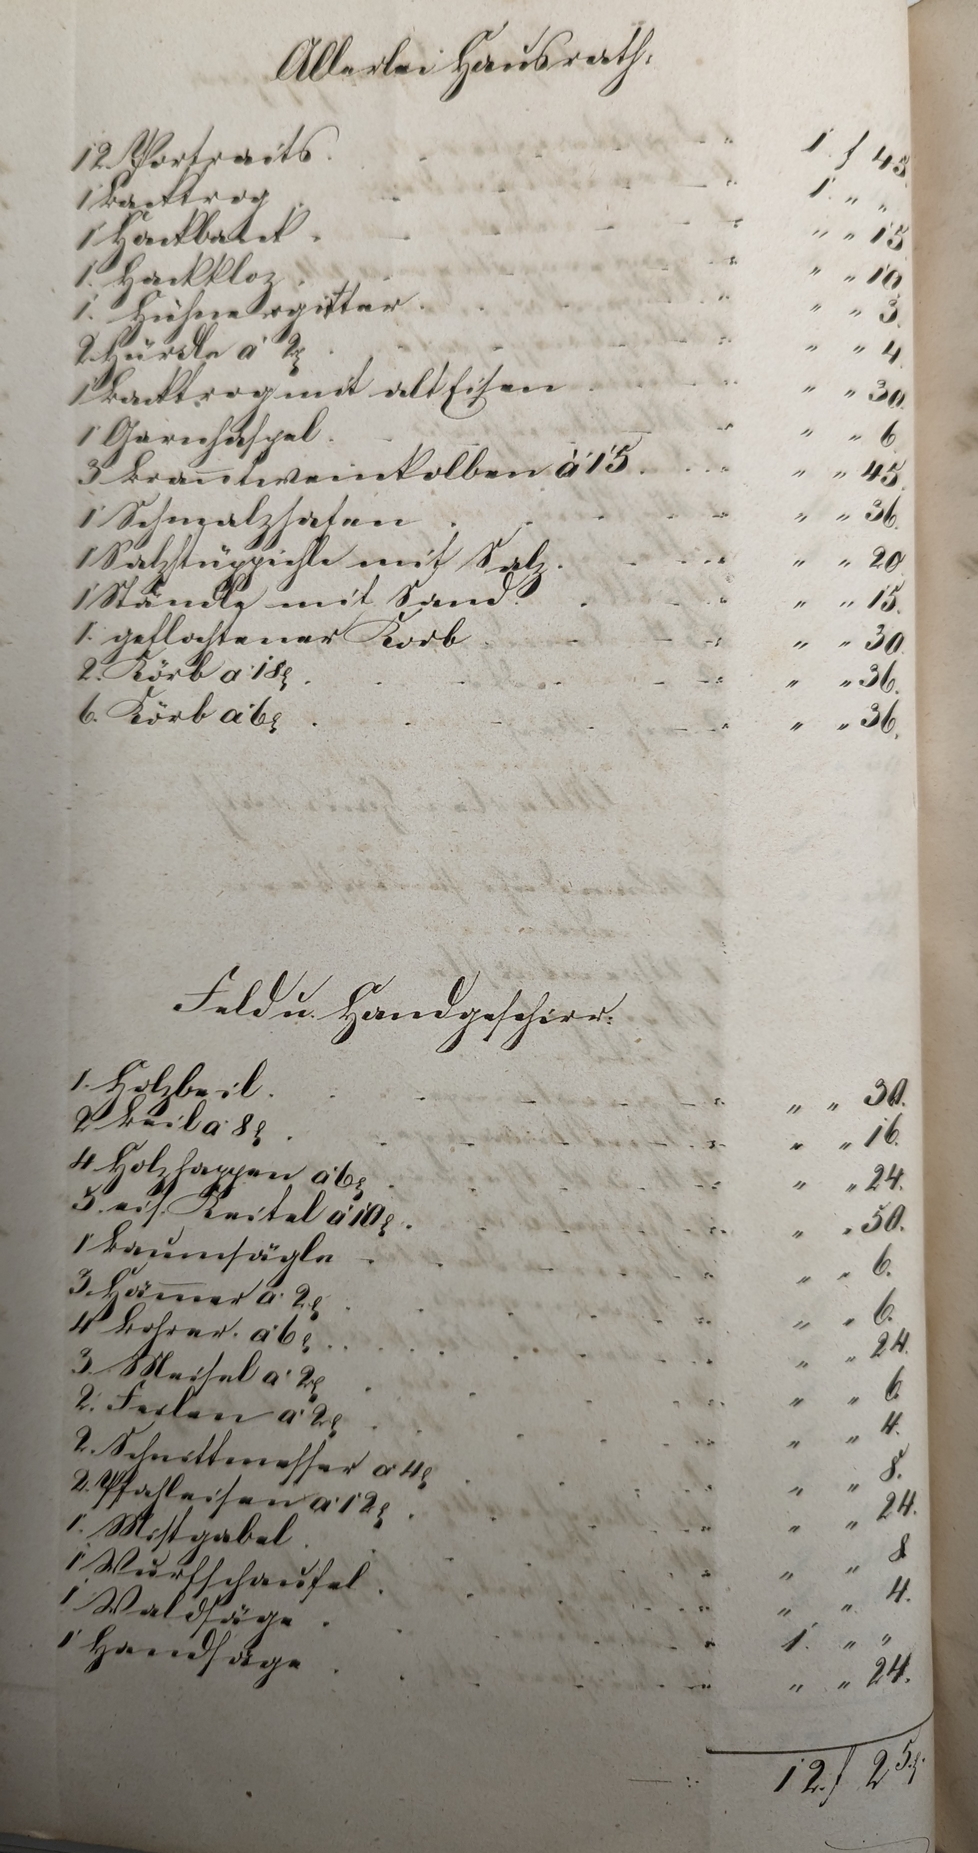 Allerlei Hausrath:
12. Portraits. 1 f 45.
1 Backtrog 1. " "
1 Hackbank. " " 15
1. Hackkloz. " " 10
1. Hühnergitter. " " 3.
2 Hürde à 2 x " " 4.
1 Backtrog mit alt Eisen " " 30.
1 Garnhaspel. " " 6
3 Brantweinkolben à 15. " " 45.
1 Schmalzhafen. " " 36.
1 Salzstüppichle mit Salz. " " 20
1 Ständle mit Sand. " " 15.
1. geflochtener Korb " " 30
2. Körb a 18 x. " " 36.
6. Körb à 6 x. " " 36.
Feld u. Handgeschirr:
1. Holzbeil. " " 30.
2 Beil a 8 x. " " 16.
4 Holzhappen à 6 x. " " 24.
5. eis. Keitel à 10 x. " " 50.
1 Baumsägle " " 6.
3. Hammer à 2 x. " " 6.
4 Bohrer. à 6 x. " " 24.
3. Meisel a 2 x " " 6
2. Feilen à 2 x. " " 4.
2. Schnittmesser a 4 x " " 8.
2. Pfahleisen à 12 x. " " 24.
1. Mistgabel. " " 8
1 Wurfschaufel. " " 4.
1 Waldsäge. 1. " "
1 Handsäge. " " 24.
12 f 25 x.